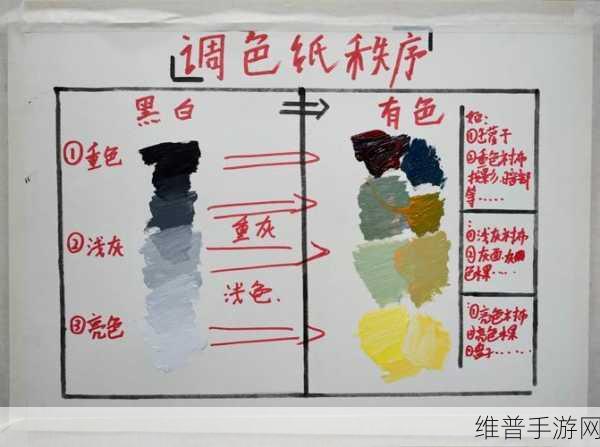 调色纸秩序
黑白
有色
①重色
重灰
②浅灰
浅色.
③亮色
如:
①
②重色衬布
投影,暗部
等……
:
①浅灰衬布
②灰面,灰
色水果…
:①亮色衬布
②亮色水果
③盘子……
维普手游网